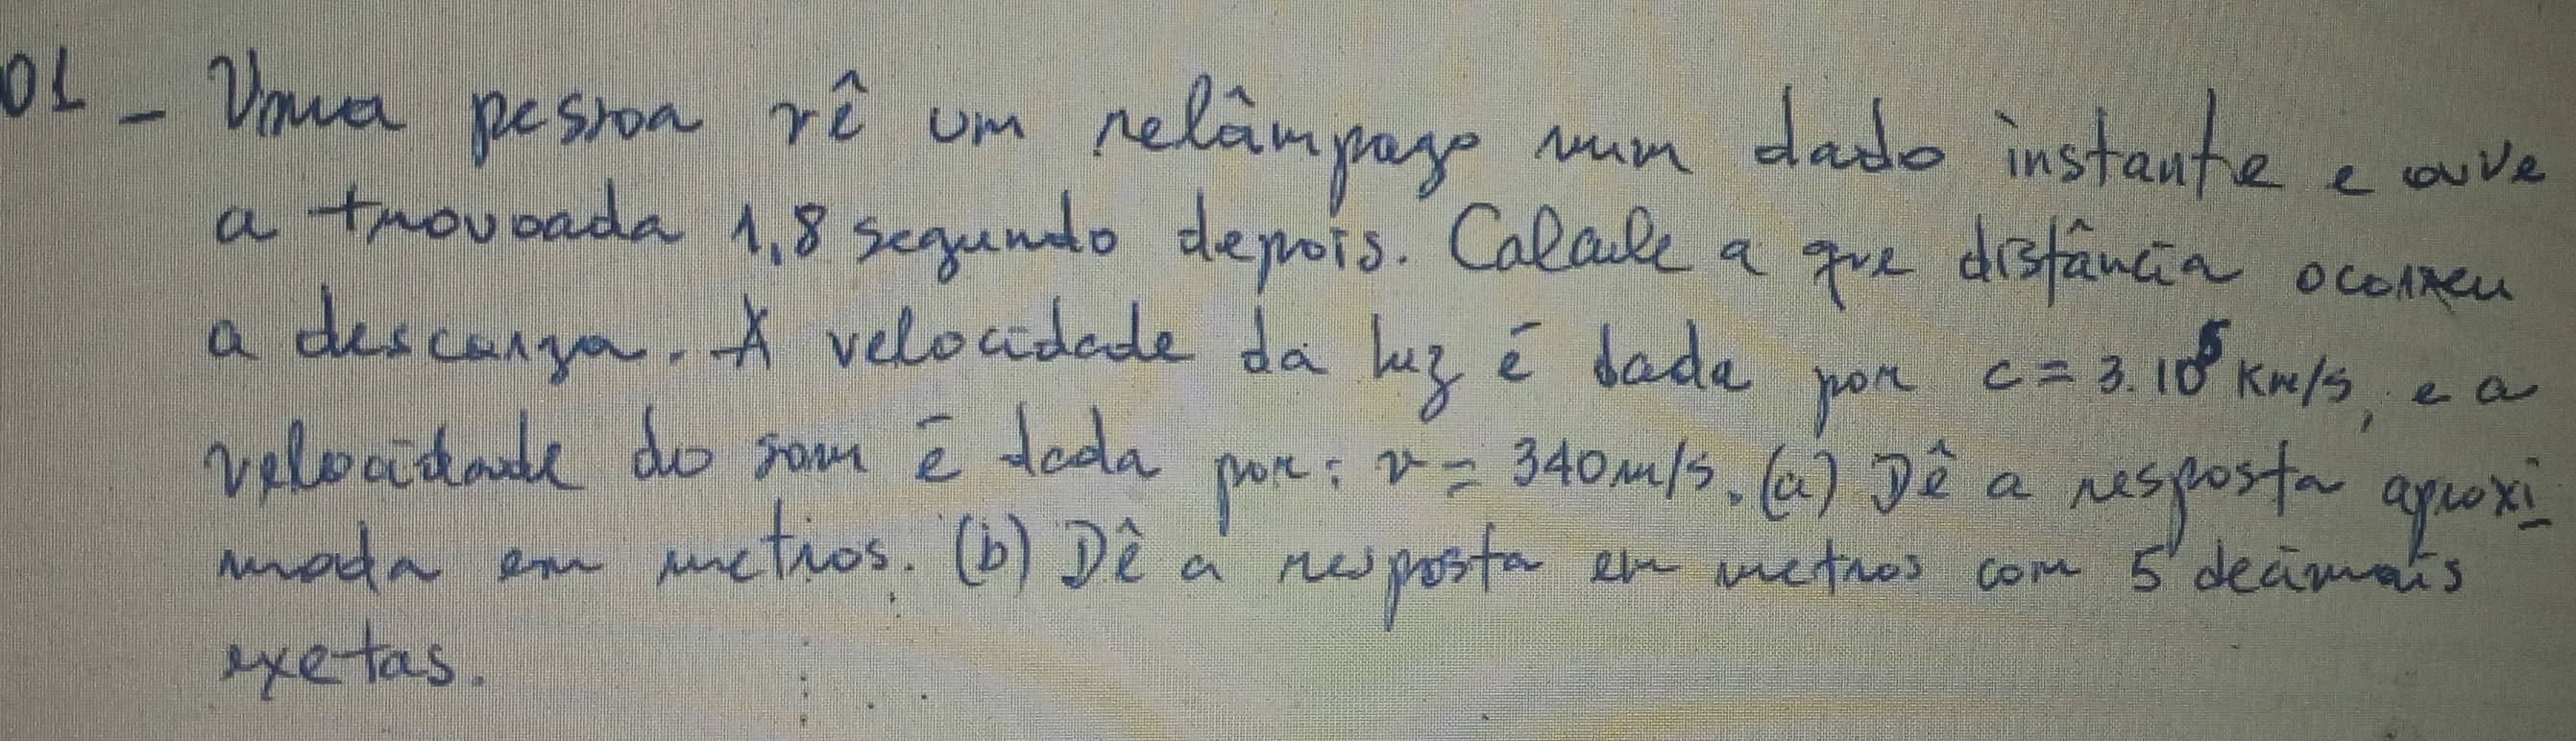 01 - Uma pessoa vê um relâmpago num dado instante e ouve
a trovoada 1,8 segundo depois. Calcule a que distância ocorreu
a descarga. A velocidade da luz é dada por c = 3.10⁵ Km/s, e a
velocidade do som é dada por: v = 340 m/s. (a) Dê a resposta aproxi
mada em metros. (b) Dê a resposta em metros com 5 decimais
exetas.